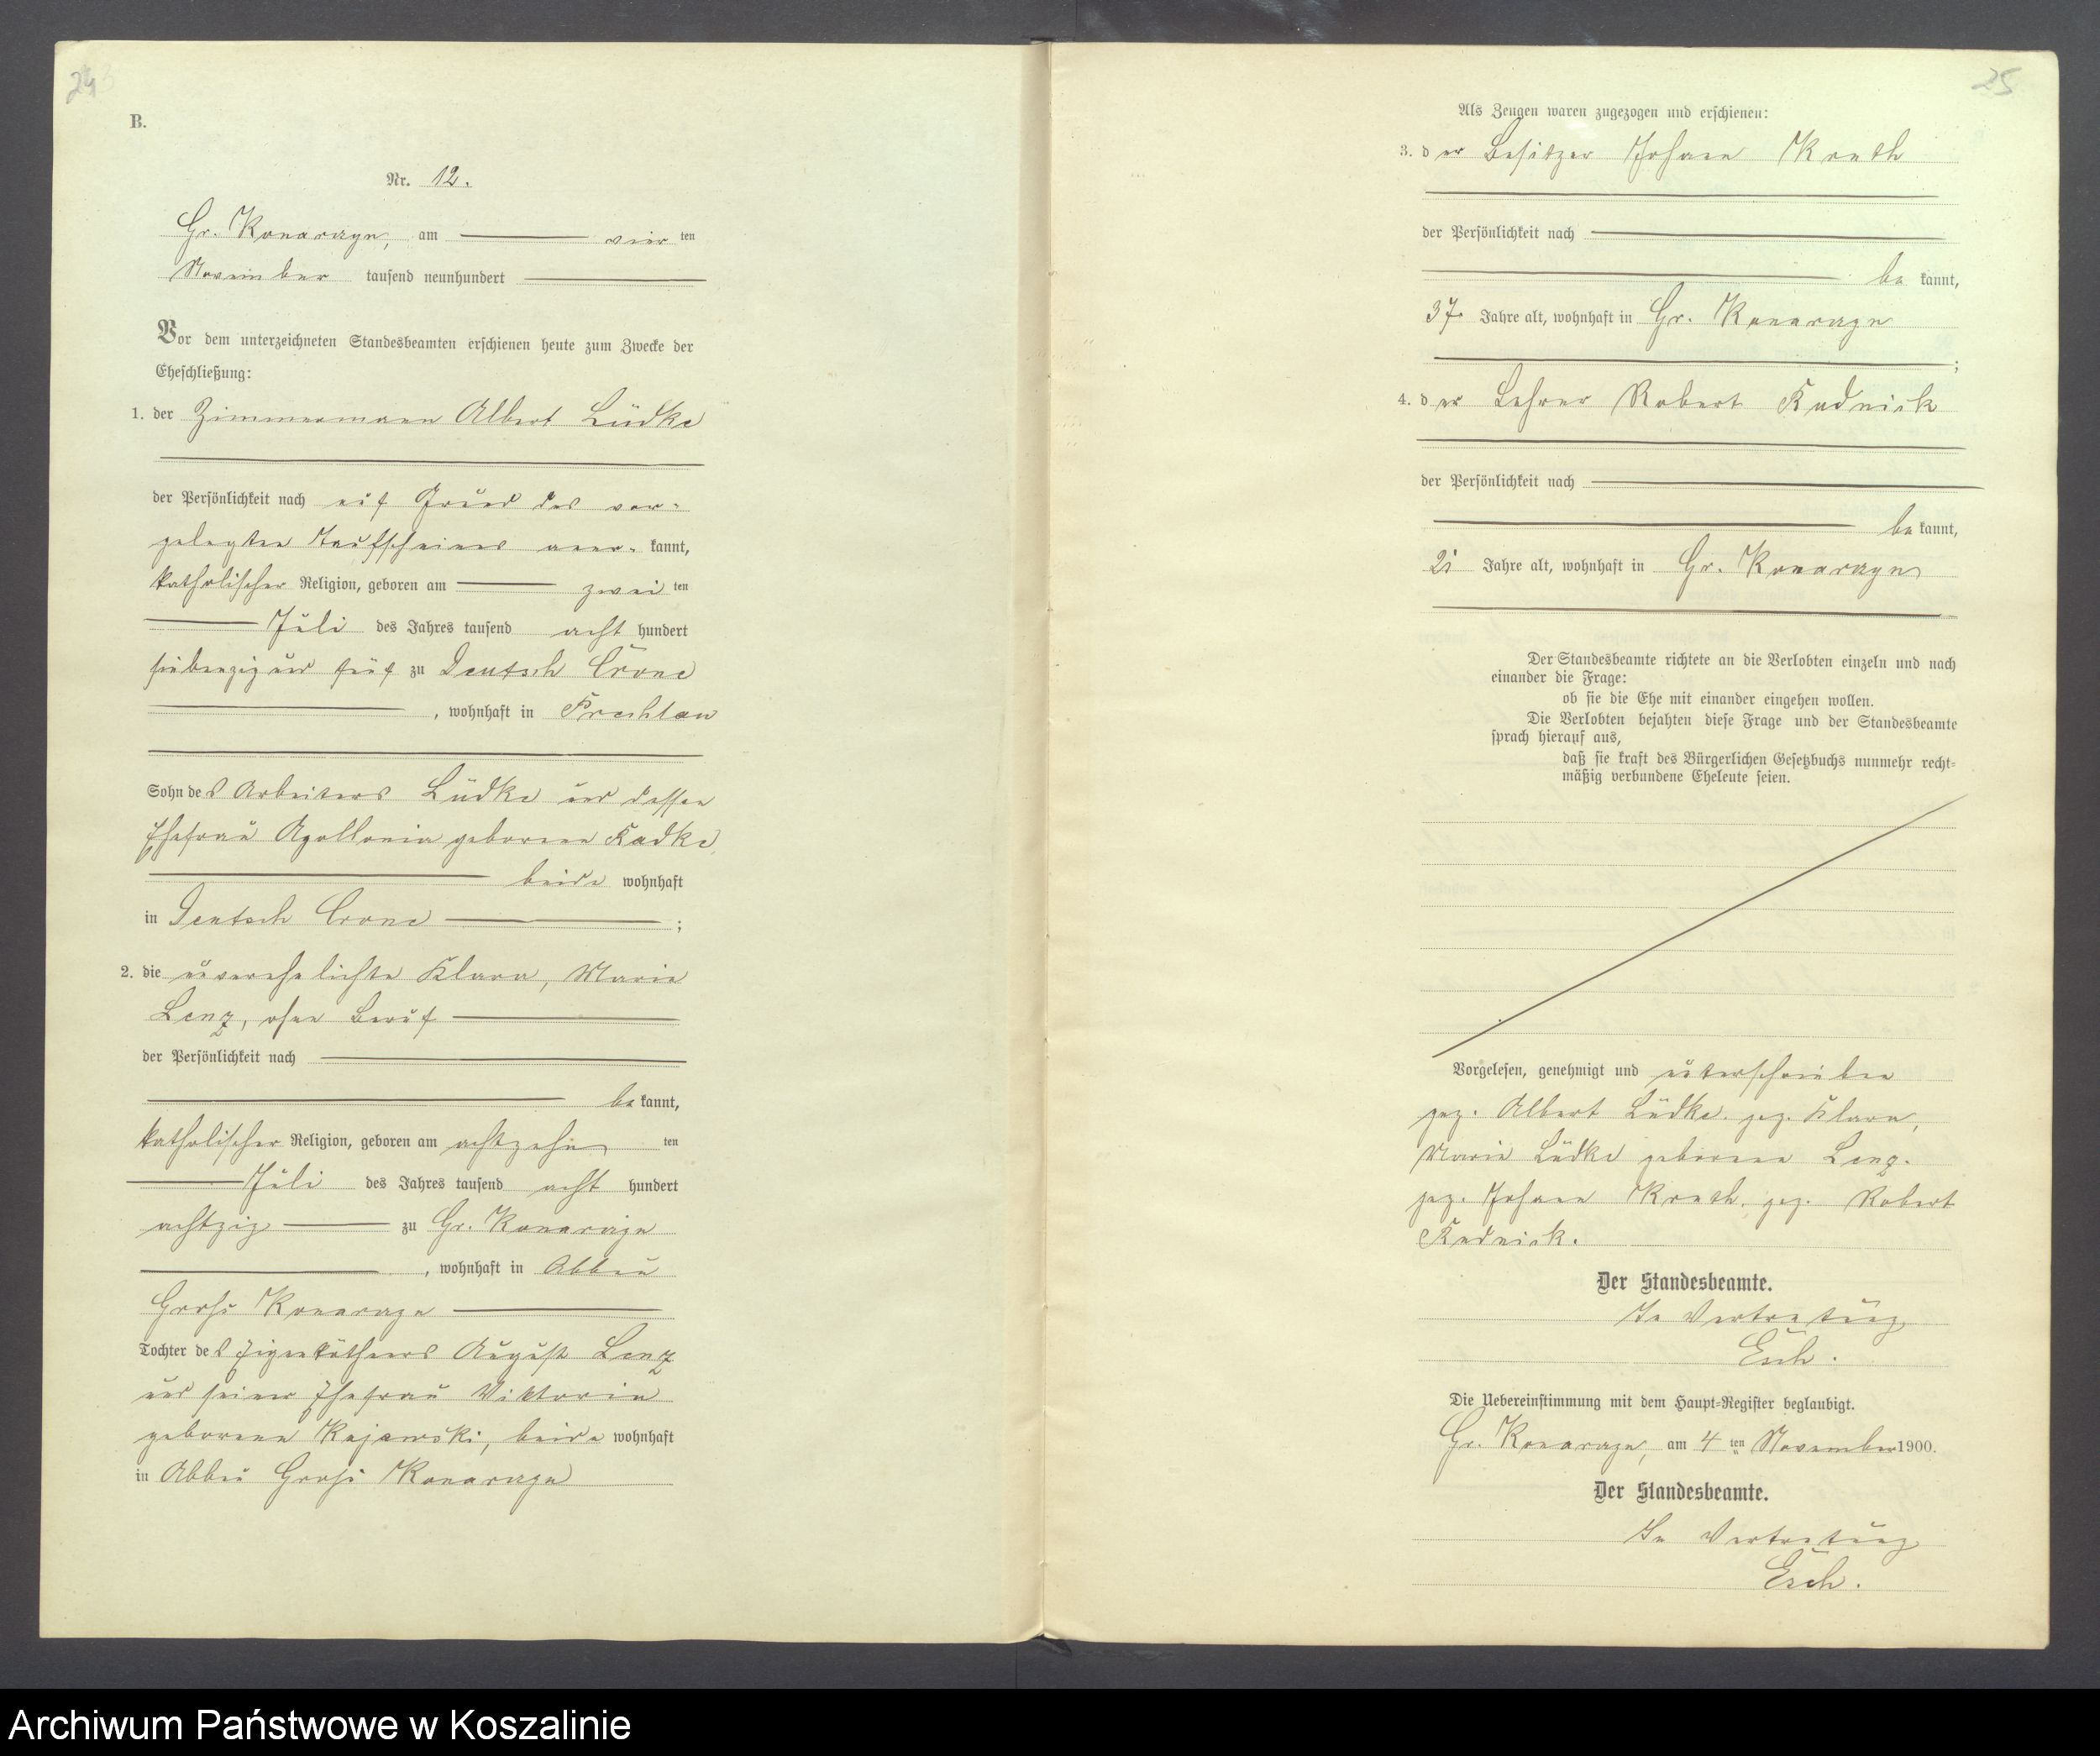 24
B.
Nr. 12.
Gr. Konarzyn, am vier ten
November tausend neunhundert
Vor dem unterzeichneten Standesbeamten erschienen heute zum Zwecke der
Eheschließung:
1. der Zimmermann Albert Lüdke
der Persönlichkeit nach auf Grund des vor-
gelegten Taufscheines aner- kannt,
katholischer Religion, geboren am zwei ten
Juli des Jahres tausend acht hundert
siebenzig und fünf zu Deutsch Crone
, wohnhaft in Prechlau
Sohn des Arbeiters Lüdke und dessen
Ehefrau Apollonia geborene Radke,
beide wohnhaft
in Deutsch Crone ;
2. die unverehelichte Klara, Maria
Lenz, ohne Beruf
der Persönlichkeit nach
be kannt,
katholischer Religion, geboren am achtzehn ten
Juli des Jahres tausend acht hundert
achtzig zu Gr. Konarzyn
, wohnhaft in Abbau
Groß Konarzyn
Tochter des Eigenkäthners August Lenz
und seiner Ehefrau Viktoria
geborene Kajewski, beide wohnhaft
in Abbau Groß Konarzyn
25
Als Zeugen waren zugezogen und erschienen:
3. d er Besitzer Johann
der Persönlichkeit nach
be kannt,
37 Jahre alt, wohnhaft in Gr. Konarzyn
;
4. d er Lehrer Robert Rudnick
der Persönlichkeit nach
be kannt,
21 Jahre alt, wohnhaft in Gr. Konarzyn
Der Standesbeamte richtete an die Verlobten einzeln und nach
einander die Frage:
ob sie die Ehe mit einander eingehen wollen.
Die Verlobten bejahten diese Frage und der Standesbeamte
sprach hierauf aus,
daß sie kraft des Bürgerlichen Gesetzbuchs nunmehr recht-
mäßig verbundene Eheleute seien.
Vorgelesen, genehmigt und unterschrieben
gez. Albert Lüdke. gez. Klara,
Maria Lüdke geborene Lenz.
gez. Johann gez. Robert
Rudnick.
Der Standesbeamte.
In Vertretung
Esch.
Die Uebereinstimmung mit dem Haupt-Register beglaubigt.
Gr. Konarzyn, am 4 ten November 1900.
Der Standesbeamte.
In Vertretung
Esch.
Archiwum Państwowe w Koszalinie